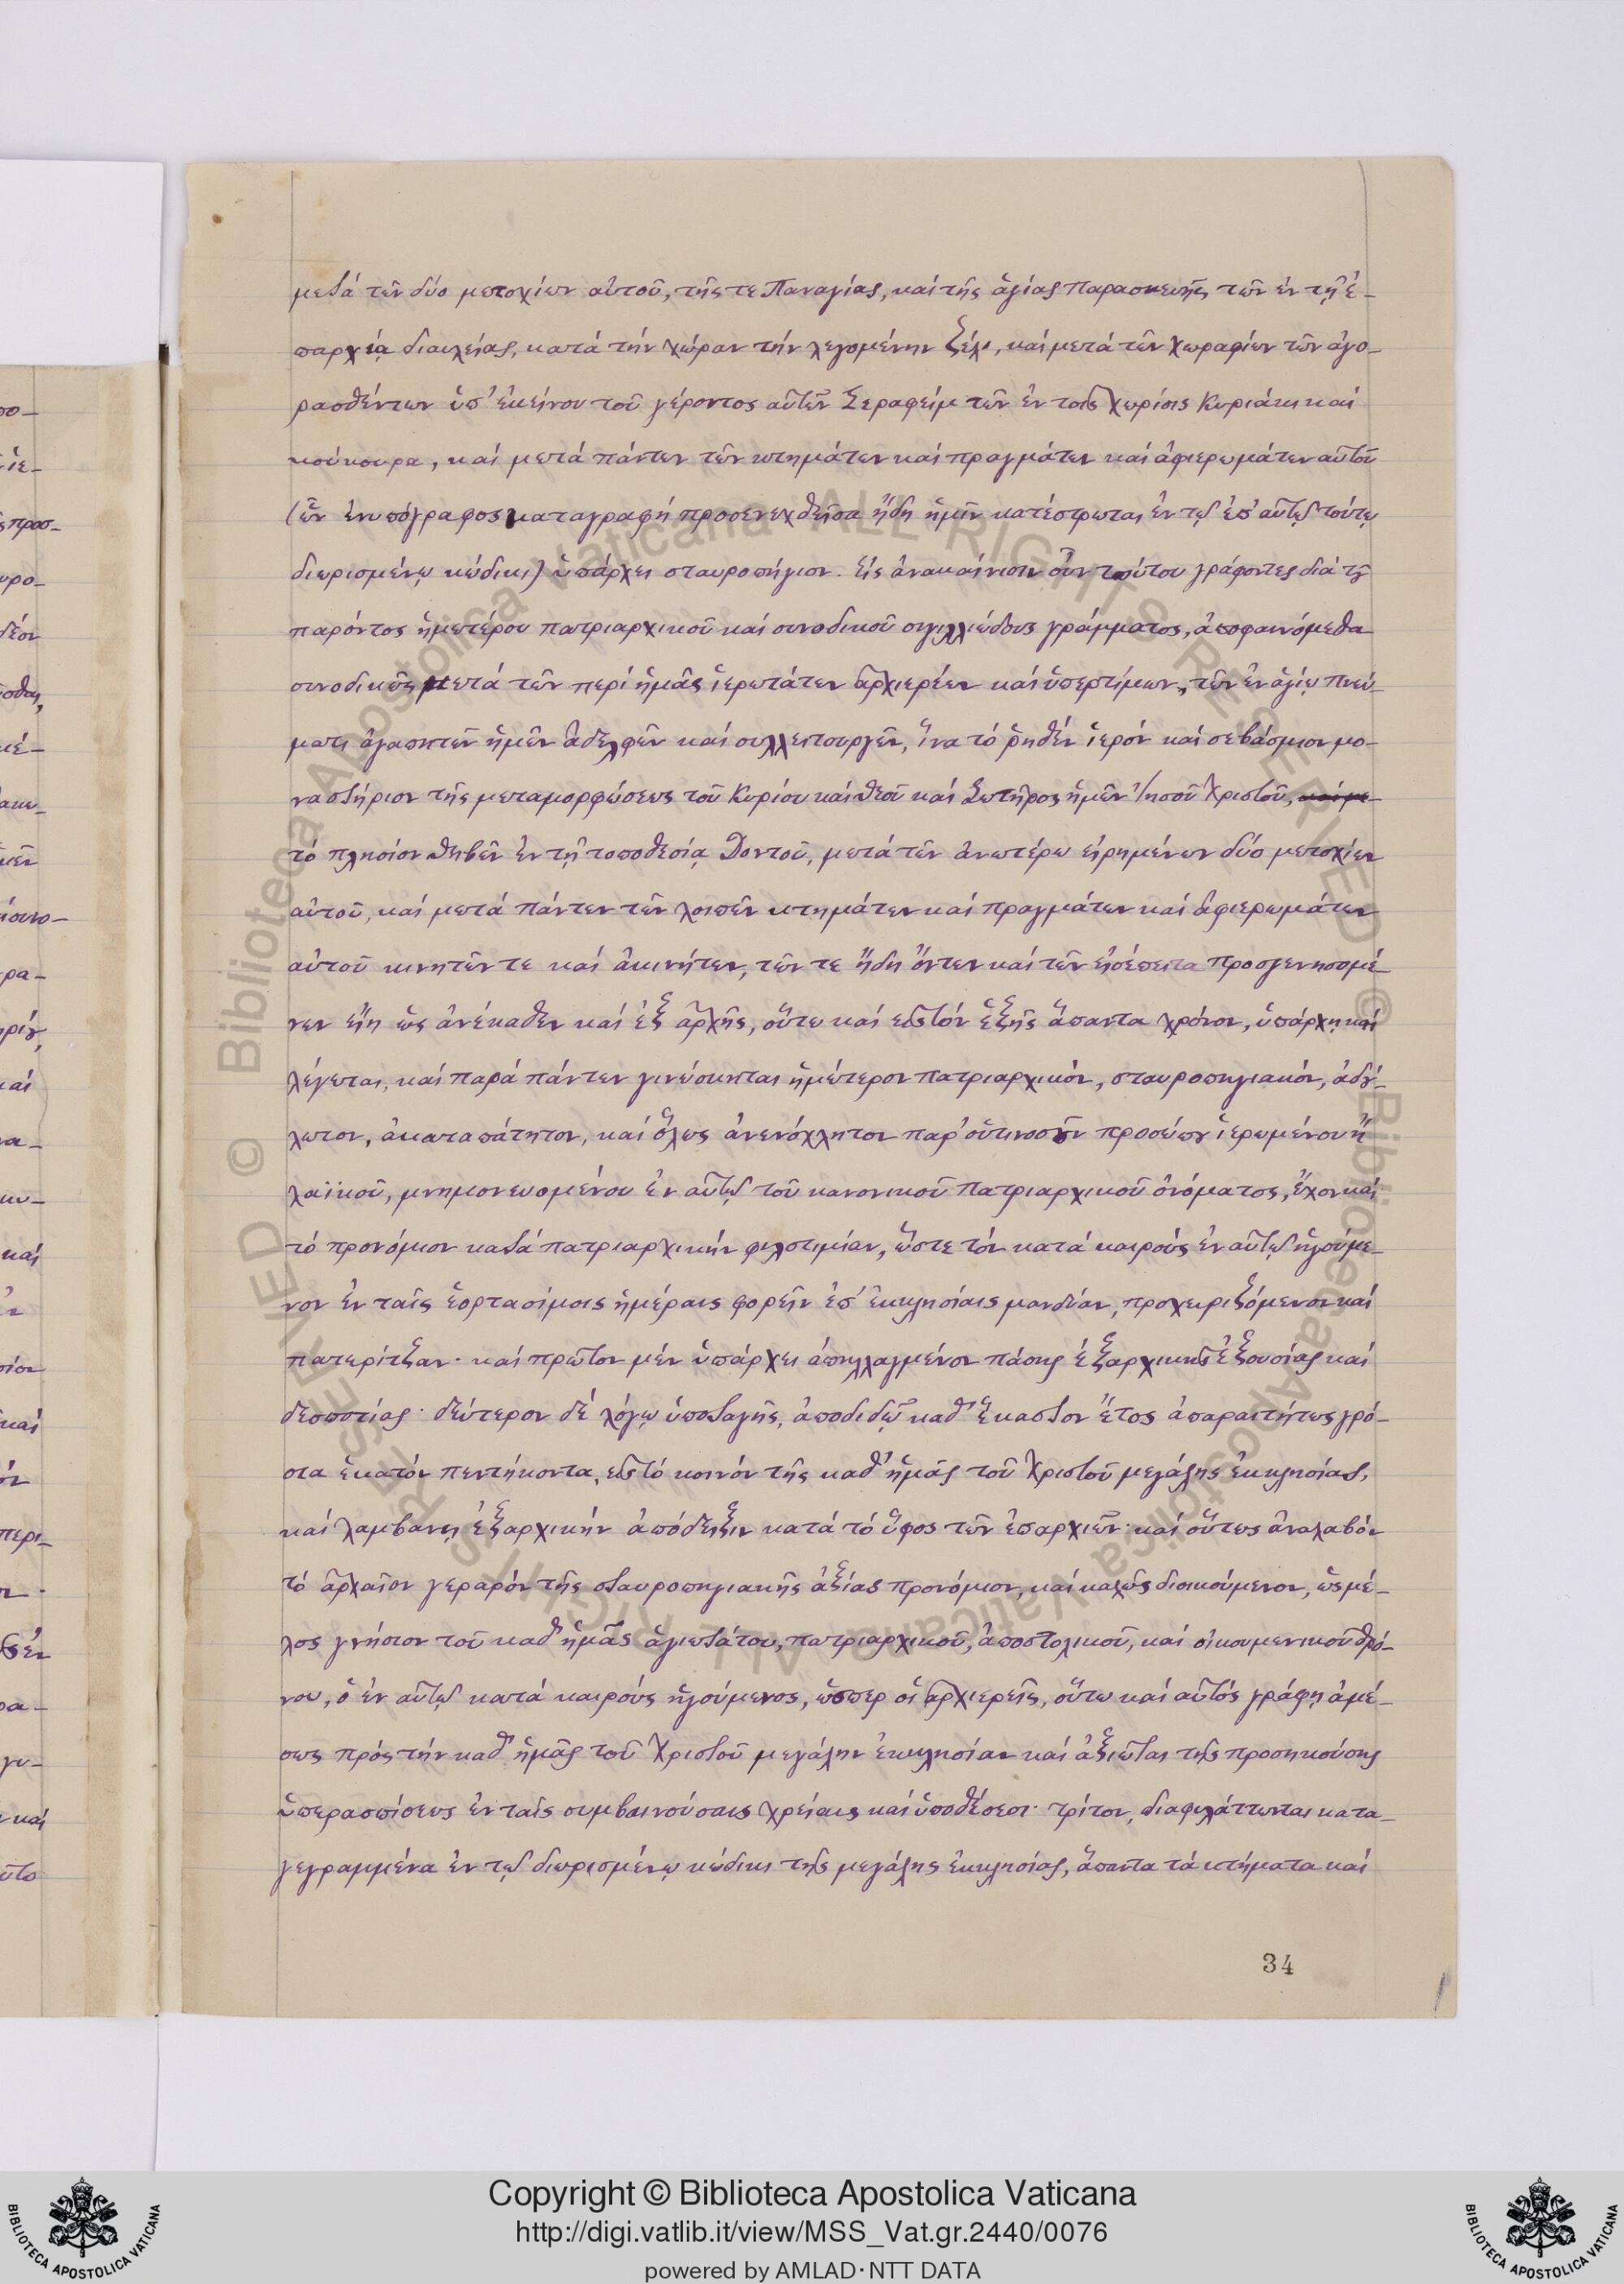 μετά τῶν δύο μετοχίων αὐτοῦ, τῆς τε Παναγίας, καί τῆς ἁγίας Παρασκευῆς τῶν ἐν τῇ ἐ-
παρχίᾳ διαυλείας, κατά τήν χώραν τήν λεγομένην ζέλι, καί μετά τῶν χωραφίων τῶν ἀγο-
ρασθέντων ὑπ' ἐκείνου τοῦ γέροντος αὐτῶν Σεραφείμ τῶν ἐν τοῖς χωρίοις Κυριάκι καί
κούκουρα, καί μετά πάντων τῶν κτημάτων καί πραγμάτων καί ἀφιερωμάτων αὐτοῦ
(ὧν ἐνυπόγραφος καταγραφή προσενεχθεῖσα ἤδη ἡμῖν κατέστρωται ἐν τῷ ἐπ' αὐτῷ τούτῳ
διωρισμένῳ κώδικι) ὑπάρχει σταυροπήγιον. Εἰς ἀνακαίνισιν οὖν τούτου γράφοντες διά τοῦ
παρόντος ἡμετέρου πατριαρχικοῦ καί συνοδικοῦ σιγιλλιώδους γράμματος, ἀποφαινόμεθα
συνοδικῶς μετά τῶν περί ἡμᾶς ἱερωτάτων ἀρχιερέων καί ὑπερτίμων, τῶν ἐν ἁγίῳ πνεύ-
ματι ἀγαπητῶν ἡμῶν ἀδελφῶν καί συλλειτουργῶν, ἵνα τό ῥηθέν ἱερόν καί σεβάσμιον μο-
ναστήριον τῆς μεταμορφώσεως τοῦ Κυρίου καί θεοῦ καί Σωτῆρος ἡμῶν Ἰησοῦ Χριστοῦ, καί με
τό πλησίον θηβῶν ἐν τῇ τοποθεσίᾳ Δοντοῦ, μετά τῶν ἀνωτέρω εἰρημένων δύο μετοχίων
αὐτοῦ, καί μετά πάντων τῶν λοιπῶν κτημάτων καί πραγμάτων καί ἀφιερωμάτων
αὐτοῦ κινητῶν τε καί ἀκινήτων, τῶν τε ἤδη ὄντων καί τῶν εἰσέπειτα προσγενησομέ-
νων εἴη ὡς ἀνέκαθεν καί ἐξ ἀρχῆς, οὕτω καί εἰς τόν ἑξῆς ἅπαντα χρόνον, ὑπάρχῃ καί
λέγεται, καί παρά πάντων γινώσκηται ἡμέτερον πατριαρχικόν, σταυροπηγιακόν, ἀδού-
λωτον, ἀκαταπάτητον, καί ὅλως ἀνενόχλητον παρ' οὑτινοσοῦν προσώπου ἱερωμένου ἤ
λαϊκοῦ, μνημονευομένου ἐν αὐτῷ τοῦ κανονικοῦ Πατριαρχικοῦ ὀνόματος, ἔχον καί
τό προνόμιον κατά πατριαρχικήν φιλοτιμίαν, ὥστε τόν κατά καιρούς ἐν αὐτῷ ἡγούμε-
νον ἐν ταῖς ἑορτασίμοις ἡμέραις φορεῖν ἐπ' ἐκκλησίαις μανδύαν, προχειριζόμενον καί
πατερίτζαν· καί πρῶτον μέν ὑπάρχει ἀπηλλαγμένον πάσης ἐξαρχικῆς ἐξουσίας καί
δεσποτίας· δεύτερον δέ λόγῳ ὑποταγῆς, ἀποδιδῷ καθ' ἕκαστον ἔτος ἀπαραιτήτως γρό-
σια ἑκατόν πεντήκοντα, εἰς τό κοινόν τῆς καθ' ἡμᾶς τοῦ Χριστοῦ μεγάλης ἐκκλησίας,
καί λαμβανῃ ἐξαρχικήν ἀπόδειξιν κατά τό ὕφος τῶν ἐπαρχιῶν· καί οὕτως ἀναλαβόν
τό ἀρχαῖον γεραρόν τῆς σταυροπηγιακῆς ἀξίας προνόμιον, καί καλῶς διοικούμενον, ὡς μέ-
λος γνήσιον τοῦ καθ' ἡμᾶς ἁγιωτάτου, πατριαρχικοῦ, ἀποστολικοῦ, καί οἰκουμενικοῦ θρό-
νου, ὁ ἐν αὐτῷ κατά καιρούς ἡγούμενος, ὥσπερ οἱ ἀρχιερεῖς, οὕτω καί αὐτός γράφῃ ἀμέ-
σως πρός τήν καθ' ἡμᾶς τοῦ Χριστοῦ μεγάλην ἐκκλησίαν καί ἀξιῶται τῆς προσηκούσης
ὑπερασπίσεως ἐν ταῖς συμβαινούσαις χρείαις καί ὑποθέσεσι· τρίτον, διαφυλάττωνται κατα-
γεγραμμένα ἐν τῷ διωρισμένῳ κώδικι τῆς μεγάλης ἐκκλησίας, ἅπαντα τά κτήματα καί
34
Copyright © Biblioteca Apostolica Vaticana
http://digi.vatlib.it/view/MSS_Vat.gr.2440/0076
powered by AMLAD·NTT DATA